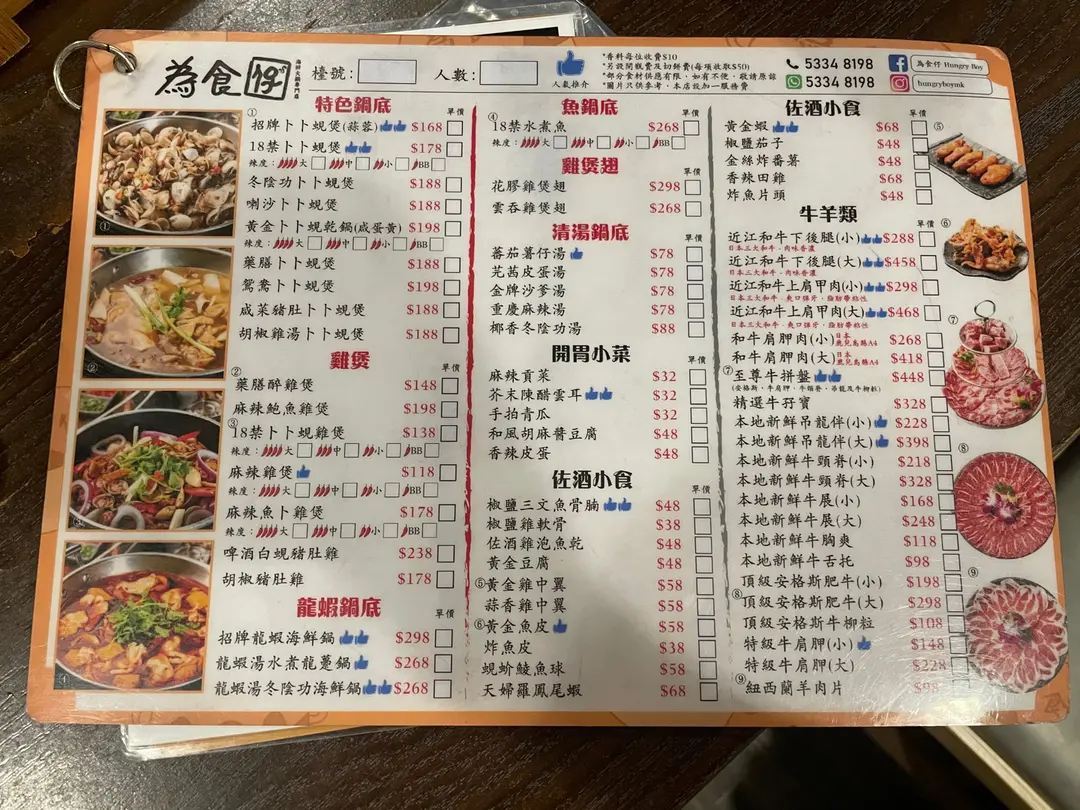 為食仔
海鮮火鍋專門店
檯號：
人數：
人氣推介
*香料每位收費$10
*另設開觀費及切餅費(每項收取$50)
*部份食材供應有限，如有不便，敬請原諒
*圖片只供參考，本店設加一服務費
5334 8198
5334 8198
為食仔 Hungry Boy
hungryboymk
特色鍋底
單價
① 招牌卜卜蜆煲(蒜蓉) $168
18禁卜卜蜆煲 $178
辣度：大 中 小 BB
冬陰功卜卜蜆煲 $188
喇沙卜卜蜆煲 $188
黃金卜卜蜆乾鍋(咸蛋黃) $198
辣度：大 中 小 BB
藥膳卜卜蜆煲 $188
鴛鴦卜卜蜆煲 $198
咸菜豬肚卜卜蜆煲 $188
胡椒雞湯卜卜蜆煲 $188
雞煲
單價
② 藥膳醉雞煲 $148
麻辣鮑魚雞煲 $198
③ 18禁卜卜蜆雞煲 $138
辣度：大 中 小 BB
麻辣雞煲 $118
辣度：大 中 小 BB
麻辣魚卜雞煲 $178
辣度：大 中 小 BB
啤酒白蜆豬肚雞 $238
胡椒豬肚雞 $178
龍蝦鍋底
單價
招牌龍蝦海鮮鍋 $298
龍蝦湯水煮龍躉鍋 $268
龍蝦湯冬陰功海鮮鍋 $268
魚鍋底
單價
④ 18禁水煮魚 $268
辣度：大 中 小 BB
雞煲翅
單價
花膠雞煲翅 $298
雲吞雞煲翅 $268
清湯鍋底
單價
蕃茄薯仔湯 $78
芫茜皮蛋湯 $78
金牌沙爹湯 $78
重慶麻辣湯 $78
椰香冬陰功湯 $88
開胃小菜
單價
麻辣貢菜 $32
芥末陳醋雲耳 $32
手拍青瓜 $32
和風胡麻醬豆腐 $48
香辣皮蛋 $48
佐酒小食
單價
椒鹽三文魚骨腩 $48
椒鹽雞軟骨 $38
佐酒雞泡魚乾 $48
黃金豆腐 $48
⑤黃金雞中翼 $58
蒜香雞中翼 $58
⑥黃金魚皮 $58
炸魚皮 $38
蜆蚧鯪魚球 $58
天婦羅鳳尾蝦 $68
佐酒小食
單價
黃金蝦 $68
椒鹽茄子 $48
金絲炸番薯 $48
香辣田雞 $68
炸魚片頭 $48
牛羊類
單價
近江和牛下後腿(小) $288
日本三大和牛，肉味香濃
近江和牛下後腿(大) $458
日本三大和牛，肉味香濃
近江和牛上肩甲肉(小) $298
日本三大和牛，爽口彈牙，脂肪帶粘性
近江和牛上肩甲肉(大) $468
日本三大和牛，爽口彈牙，脂肪帶粘性
和牛肩胛肉(小) 日本鹿兒島縣A4 $268
和牛肩胛肉(大) 日本鹿兒島縣A4 $418
⑦至尊牛拼盤 $448
(安格斯，牛肩胛，牛頸脊，吊龍及牛柳粒)
精選牛孖寶 $328
本地新鮮吊龍伴(小) $228
本地新鮮吊龍伴(大) $398
本地新鮮牛頸脊(小) $218
本地新鮮牛頸脊(大) $328
本地新鮮牛展(小) $168
本地新鮮牛展(大) $248
本地新鮮牛胸爽 $118
本地新鮮牛舌托 $98
頂級安格斯肥牛(小) $198
⑧頂級安格斯肥牛(大) $298
頂級安格斯牛柳粒 $108
特級牛肩胛(小) $148
特級牛肩胛(大) $228
⑨紐西蘭羊肉片 $98
①
②
③
④
⑤
⑥
⑦
⑧
⑨